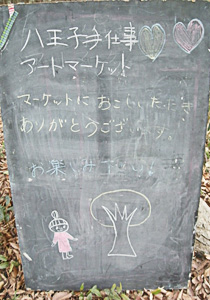 八王子手仕事
アートマーケット
マーケットにおこしいただき
ありがとうござ ます。
お楽しみ